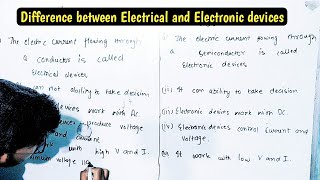 Difference between Electrical and Electronic devices
The electric current flowing through
a conductor is called
Electrical devices
can not ability to take decision
devices work with Ac.
devices produce voltage
and current
with high V and I.
voltage
The electric current flowing through
a semiconductor is called
Electronic devices
(ii) It can ability to take decision
(iii) Electronic devices work with DC.
(iv) Electronic devices control current and
voltage.
It work with low V and I.